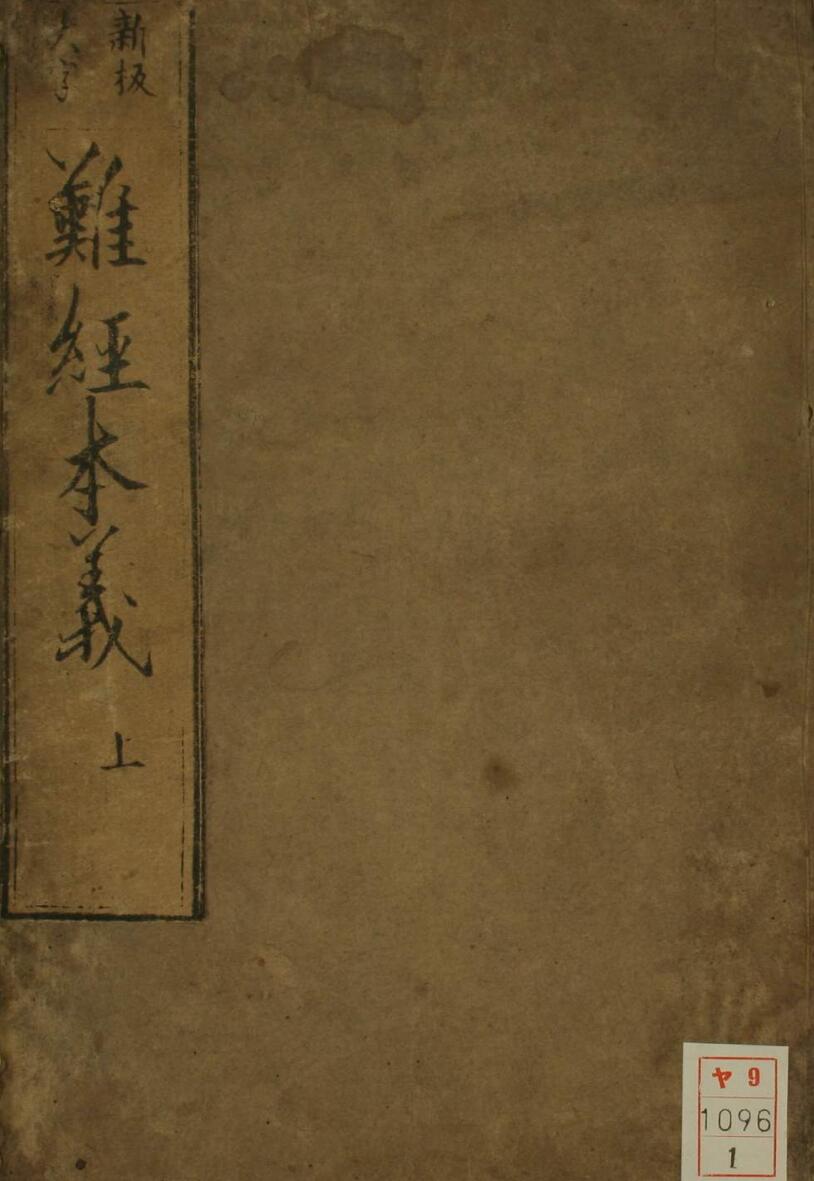 新板
大字
難經本義
上
ヤ 9
1096
1